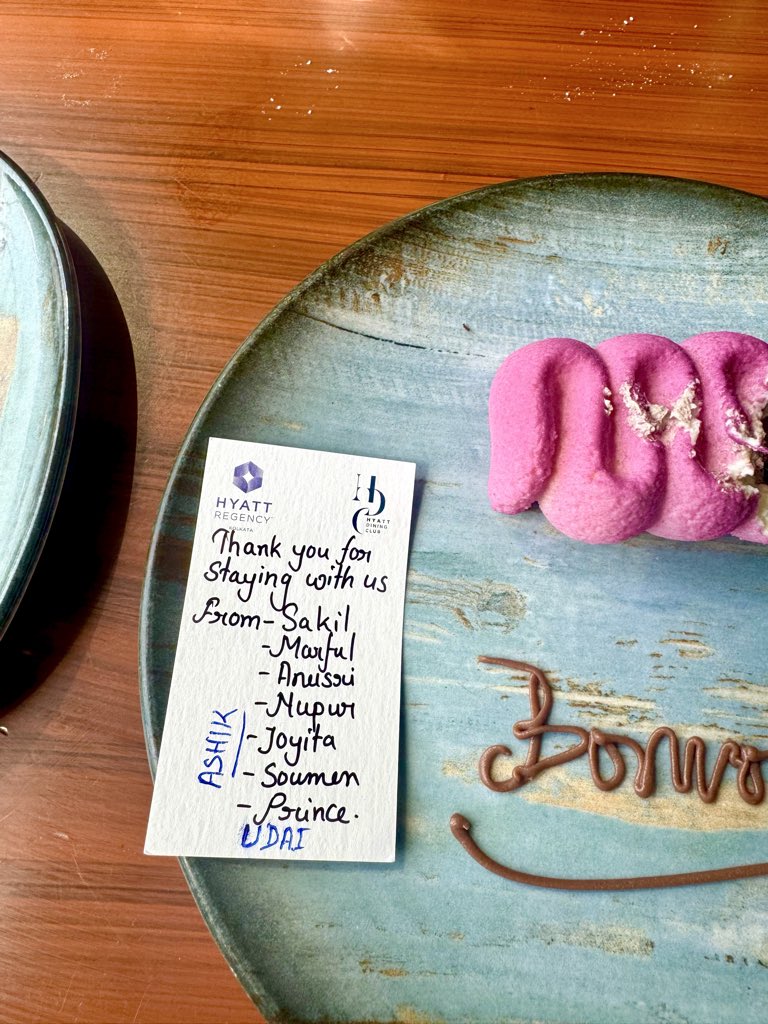 HYATT
REGENCY
KOLKATA
HDC
HYATT
DINING
CLUB
Thank you for
staying with us
From - Sakil
- Marful
- Anusri
- Nupur
- Joyita
- Soumen
- Prince.
ASHIK
UDAI
Bon vo